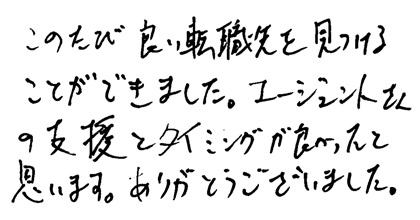 このたび良い転職先を見つける
ことができました。エージェントさん
の支援とタイミングが良かったと
思います。ありがとうございました。